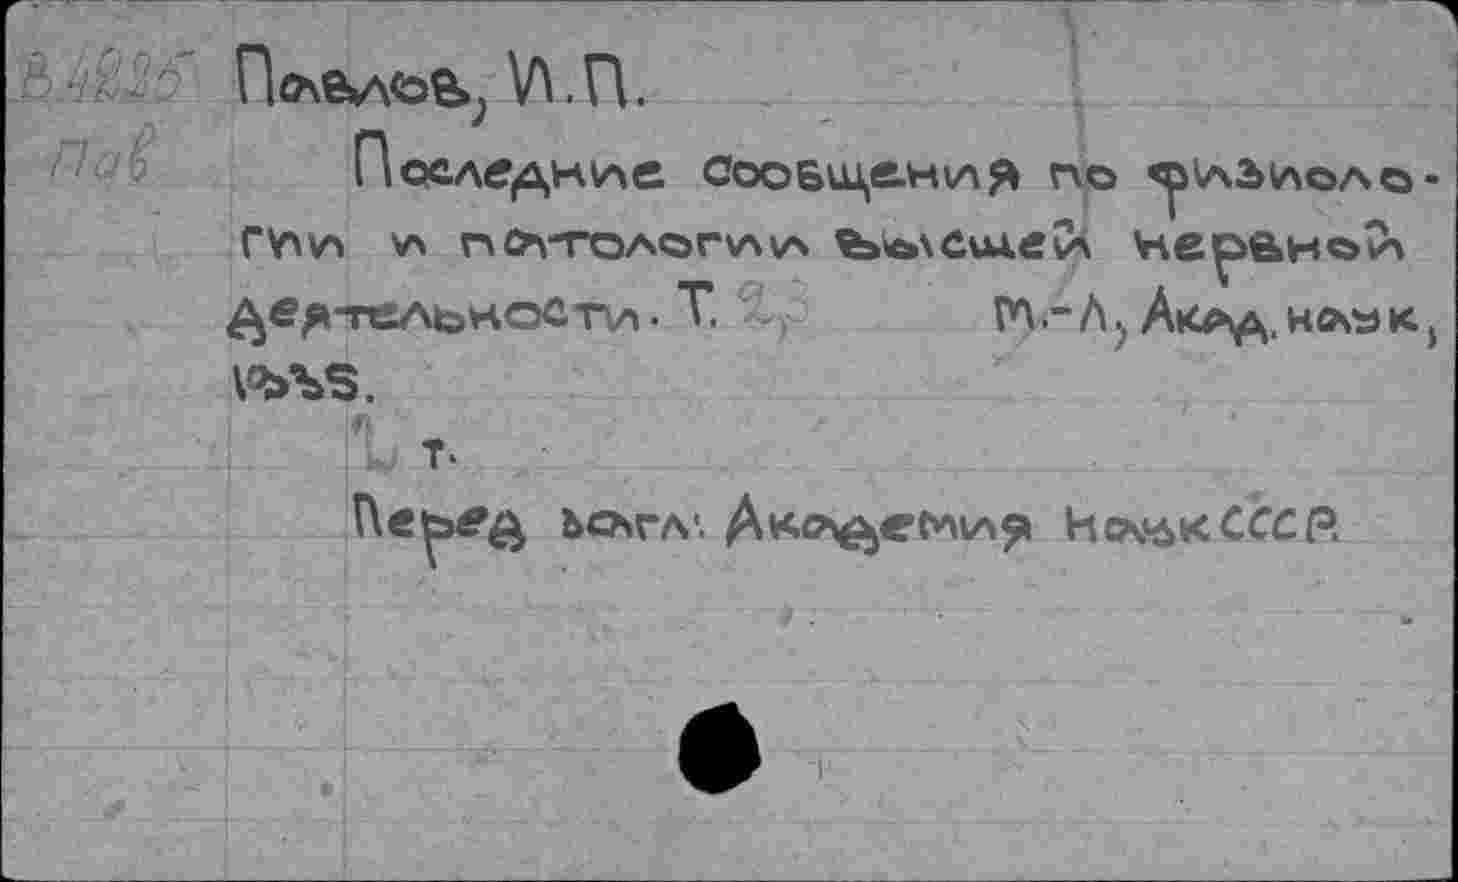 Павлов, И.П.
Пав
Последние сообщения по физиоло-
гии и патологии высшей нервной
деятельности. Т. М.-Л, Акад. наук,
т.
Перед загл: Академия Наук СССР.